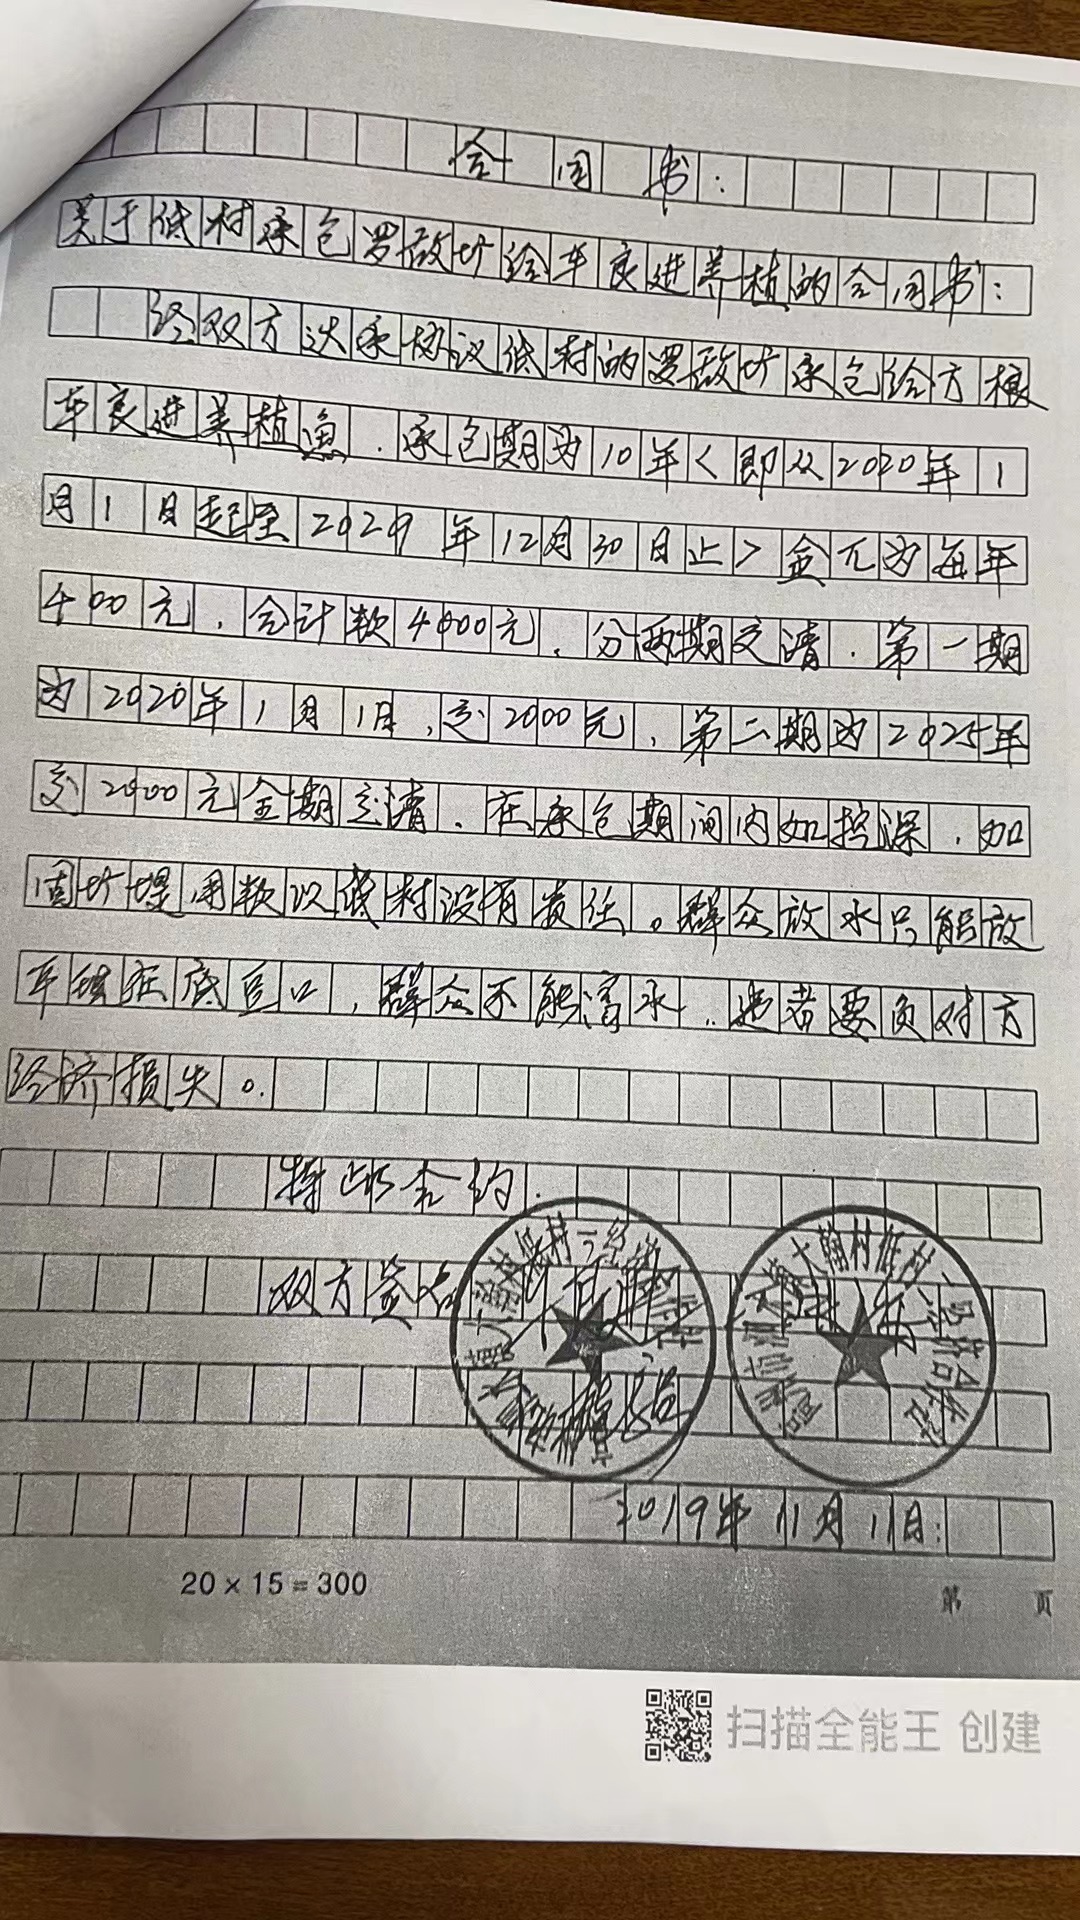 合同书：
关于低村承包罗敌圹给车良进养植的合同书：
经双方达承协议低村的罗敌圹承包给方根
车良进养植渔．承包期为10年<即从2020年1
月1日起至2029年12月30日止>金元为每年
400元，合计款4000元．分两期交清．第一期
为2020年1月1日，交2000元，第二期为2025年
交2000元全期交清．在承包期间内如挖深．加
固圹堤用款以低村没有责任。群众放水只能放
底豆口，群众不能 水．违者要负对方
经济损失。
特此合约．
双方签名
2019年11月11日：
20×15=300
第 页
扫描全能王 创建